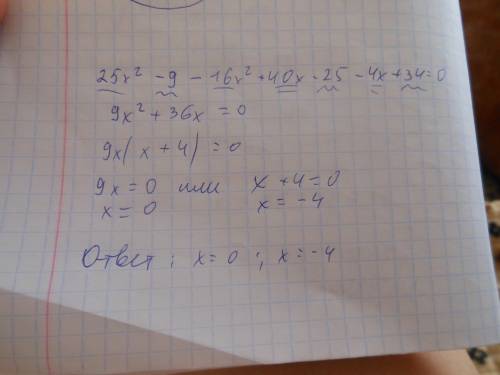 25x² - 9 - 16x² + 40x - 25 - 4x + 34 = 0
9x² + 36x = 0
9x(x + 4) = 0
9x = 0 или x + 4 = 0
x = 0 x = -4
Ответ: x = 0; x = -4